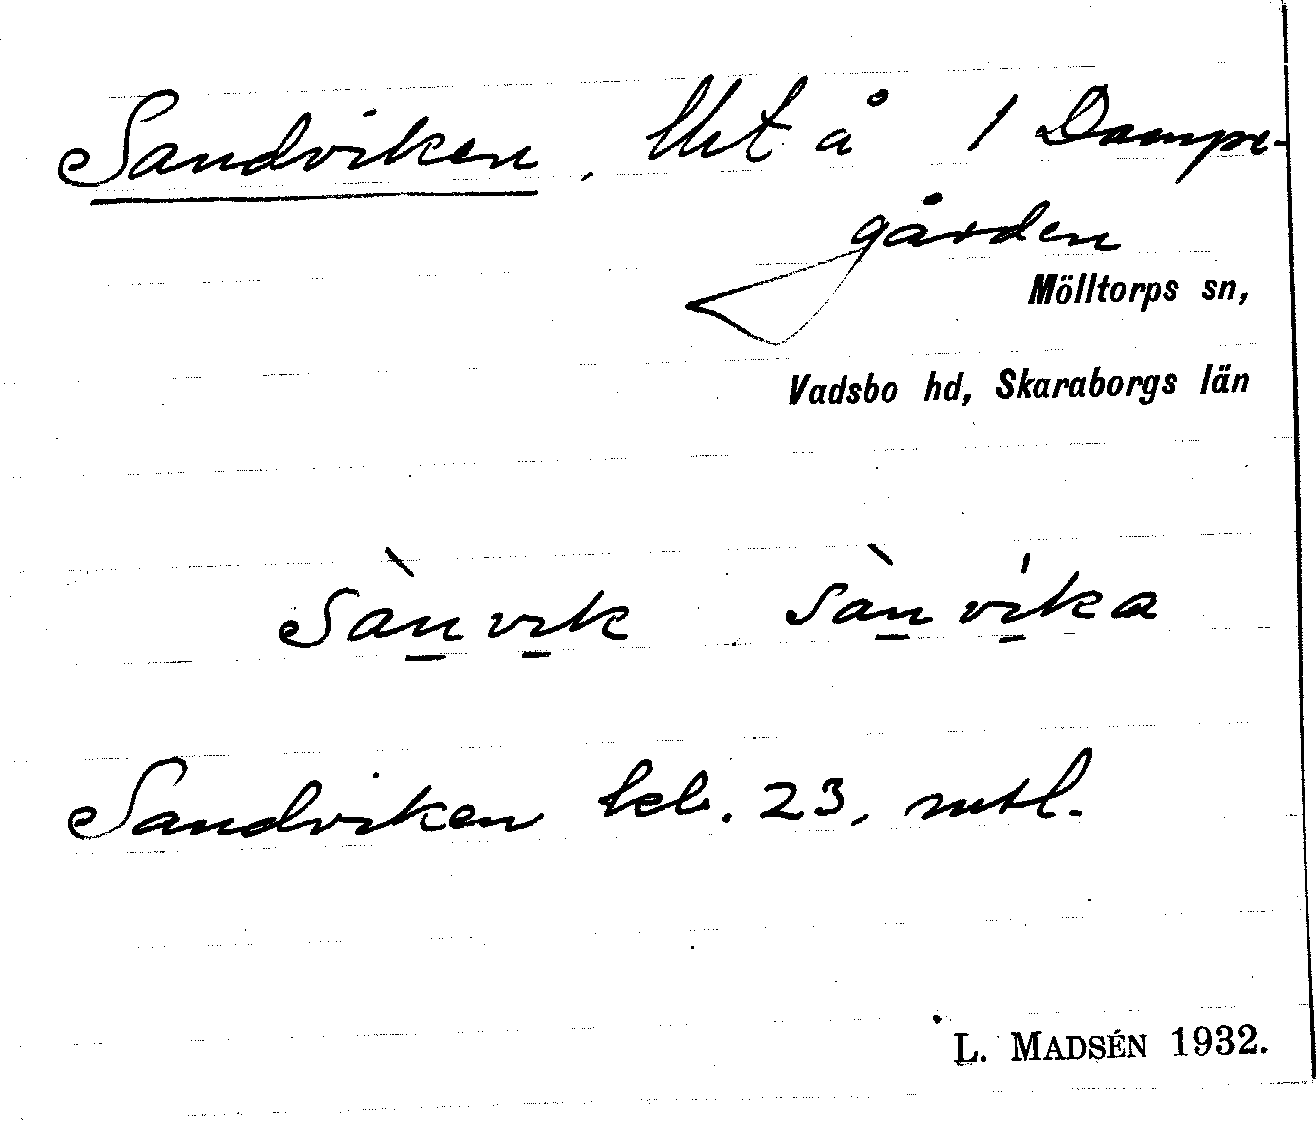 Sandviken, lht å 1 Dampe-
gården
Mölltorps sn,
Vadsbo hd, Skaraborgs län
sànvik sànvìka
Sandviken leb. 23, mtl.
L. MADSÉN 1932.